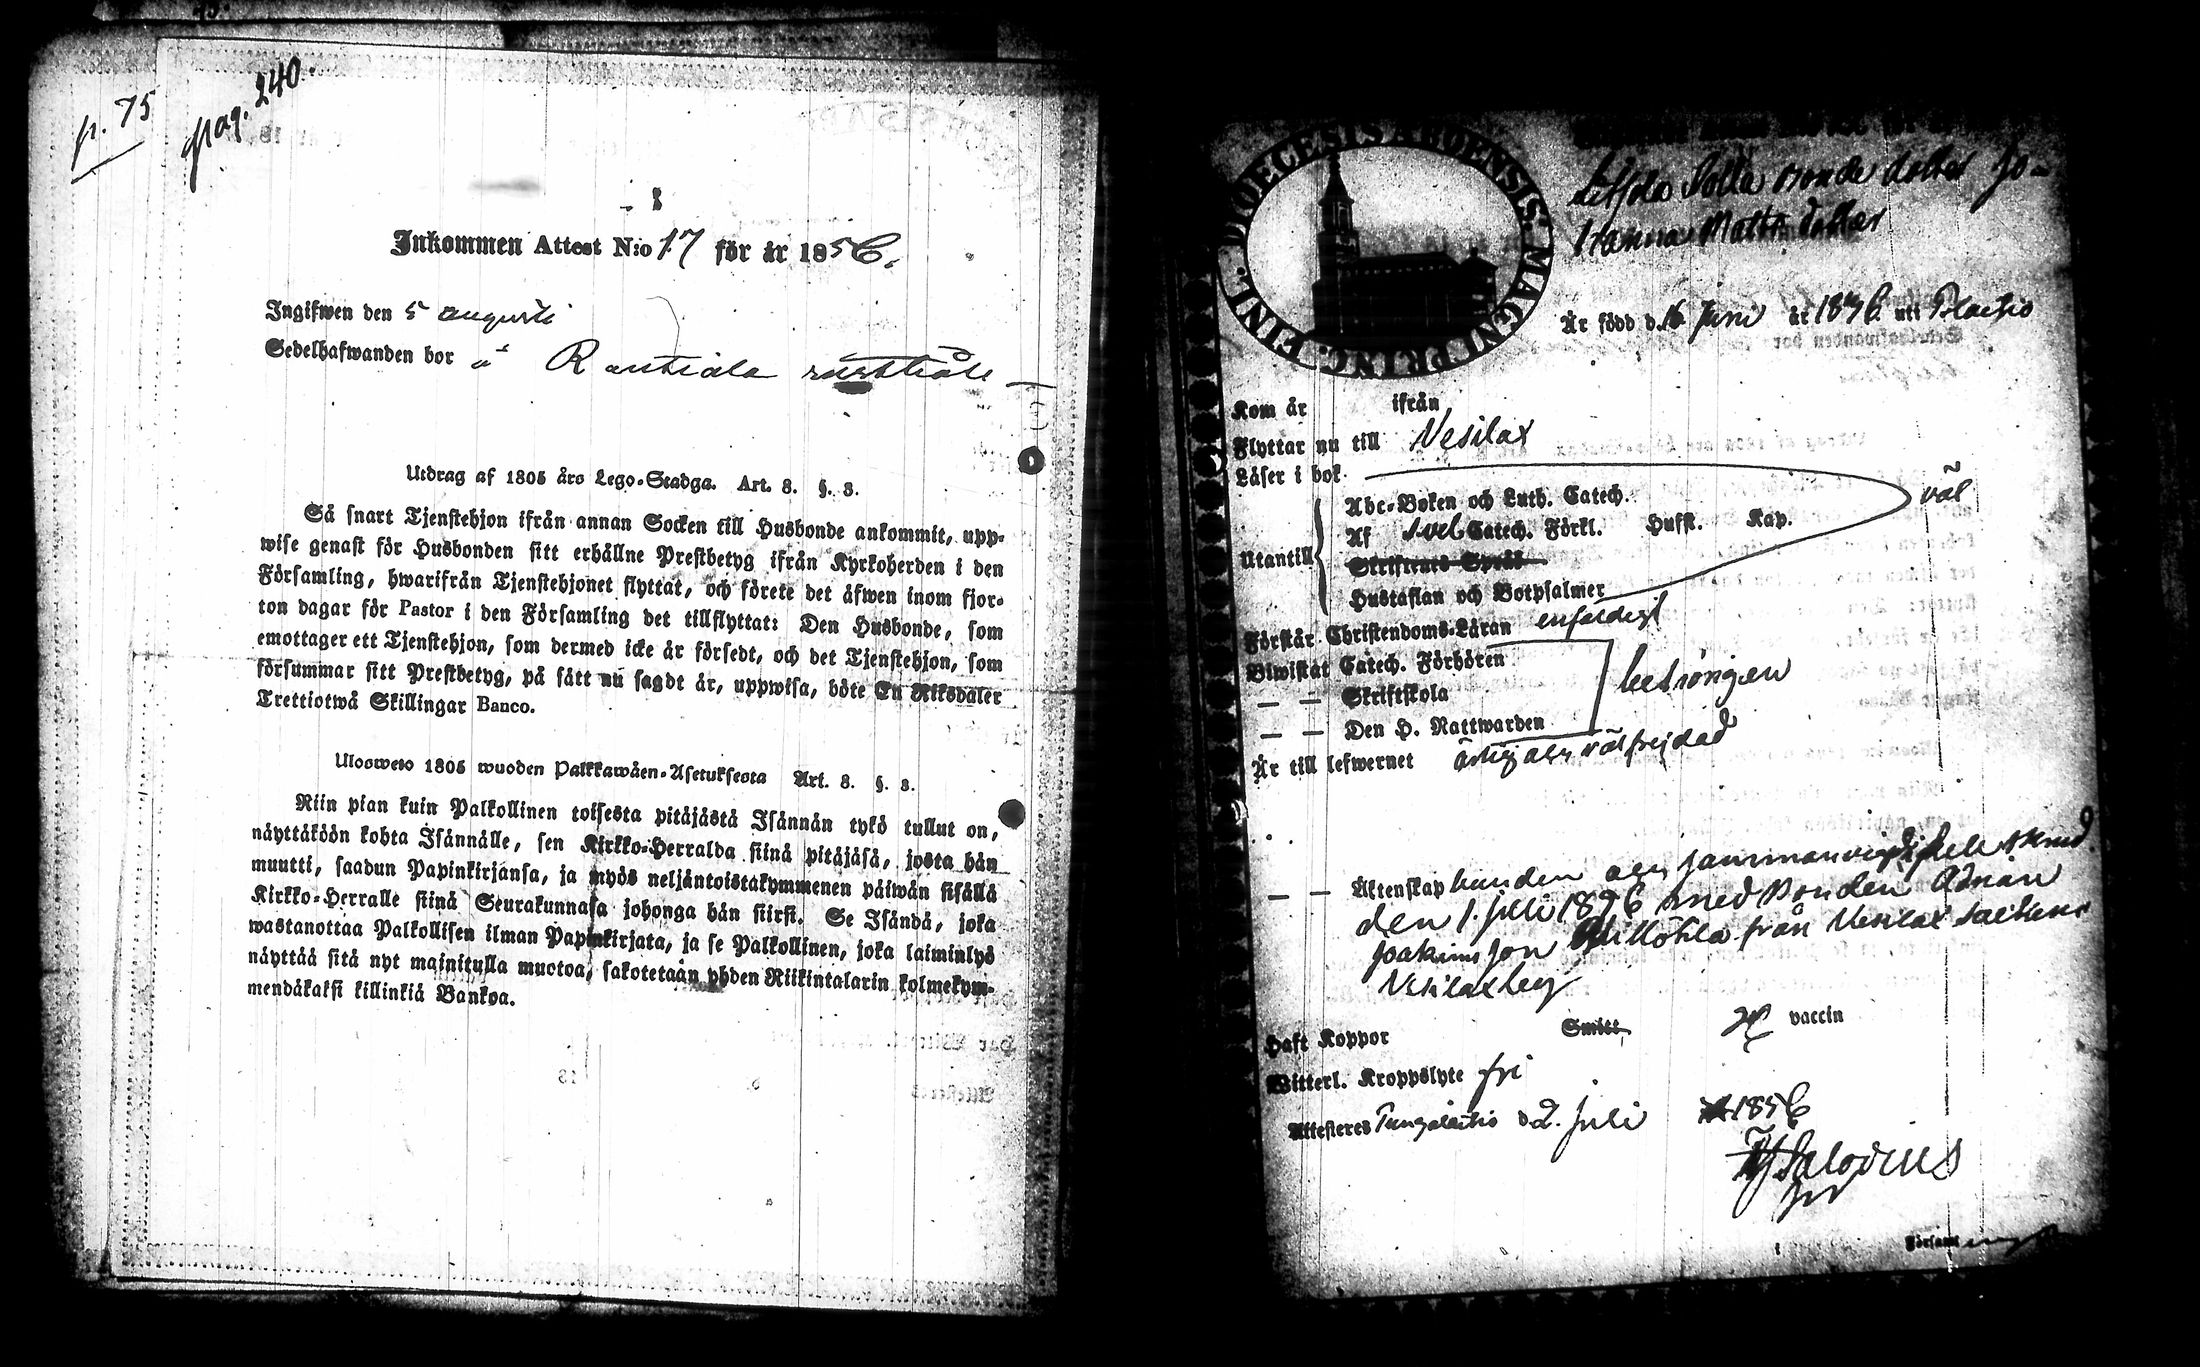 p. 75
pag. 240.
Inkommen Attest N:o 17 för år 1856.
Ingifwen den 5 augusti
Sedelhafwanden bor å Rantiala rusthåll
Utdrag af 1805 års Lego-Stadga. Art. 8. §. 3.
Så snart Tjenstehjon ifrån annan Socken till Husbonde ankommit, upp-
wise genast för Husbonden sitt erhållne Prestbetyg ifrån Kyrkoherden i den
Församling, hwarifrån Tjenstehjonet flyttat, och förete det äfwen inom fjor-
ton dagar för Pastor i den Församling det tillflyttat: Den Husbonde, som
emottager ett Tjenstehjon, som dermed icke är försedt, och det Tjenstehjon, som
försummar sitt Prestbetyg, på sätt nu sagdt är, uppwisa, böte En Riksdaler
Trettiotwå Skillingar Banco.
Ulosweto 1805 wuoden Palkkawäen-Asetuksesta Art. 8. §. 3.
Niin pian kuin Palkollinen toisesta pitäjästä Isännän tykö tullut on,
näyttäköön kohta Isännälle, sen Kirkko-Herralda siinä pitäjäsä, josta hän
muutti, saadun Papinkirjansa, ja myös neljäntoistakymmenen päiwän sisällä
Kirkko-Herralle siinä Seurakunnasa johonga hän siirsi. Se Isändä, joka
wastanottaa Palkollisen ilman Papinkirjata, ja se Palkollinen, joka laiminlyö
näyttää sitä nyt mainitulla muotoa, sakotetaan yhden Riikintalarin kolmekym-
mendäkaksi killinkiä Bankoa.
DIOECESIS ABOENSIS. MAGNI PRINC. FINL.
bonde dotter Jo-
hanna Matts dotter
Är född d. 16 Juni år 1836 uti
Kom år ifrån
Flyttar nu till Vesilax
Läser i bok
Abc-Boken och Luth. Catech. väl
Utantill Af Catech. Förkl. Hufst. Kap.
Skriftenes Språk
Hustaflan och Botpsalmer
Förstår Christendoms-Läran enfaldigt
Biwistat Catech. Förhören
— — Skriftskola
— — Den H. Nattwarden
Är till lefwernet ärlig och välfrejdad
— — Äktenskap bunden och sammanvigd
den 1. Juli 1856 med Bonden Adrian
Joakims son från Vesilax
Haft Koppor Smitt vaccin
Witterl. Kroppslyte fri
Attesteras d. 2. Juli 1856
Salovius
Församl